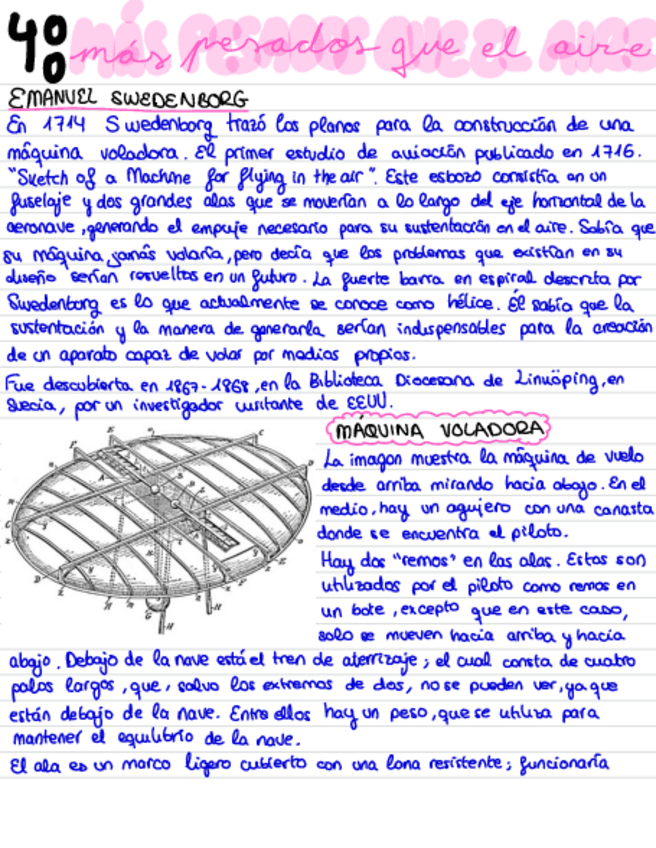 4º más pesados que el aire
EMANUEL SWEDENBORG
En 1714 Swedenborg trazó los planos para la construcción de una
máquina voladora. El primer estudio de aviación publicado en 1716.
"Sketch of a Machine for flying in the air". Este esbozo consistía en un
fuselaje y dos grandes alas que se moverían a lo largo del eje horizontal de la
aeronave, generando el empuje necesario para su sustentación en el aire. Sabía que
su máquina jamás volaría, pero decía que los problemas que existían en su
diseño serían resueltos en un futuro. La fuerte barra en espiral descrita por
Swedenborg es lo que actualmente se conoce como hélice. Él sabía que la
sustentación y la manera de generarla serían indispensables para la creación
de un aparato capaz de volar por medios propios.
Fue descubierta en 1867-1868, en la Biblioteca Diocesana de Linköping, en
Suecia, por un investigador visitante de EEUU.
MÁQUINA VOLADORA
La imagen muestra la máquina de vuelo
desde arriba mirando hacia abajo. En el
medio, hay un agujero con una canasta
donde se encuentra el piloto.
Hay dos "remos" en las alas. Estos son
utilizados por el piloto como remos en
un bote, excepto que en este caso,
solo se mueven hacia arriba y hacia
abajo. Debajo de la nave está el tren de aterrizaje; el cual consta de cuatro
palos largos, que, salvo los extremos de dos, no se pueden ver, ya que
están debajo de la nave. Entre ellos hay un peso, que se utiliza para
mantener el equilibrio de la nave.
El ala es un marco ligero cubierto con una lona resistente; funcionaría